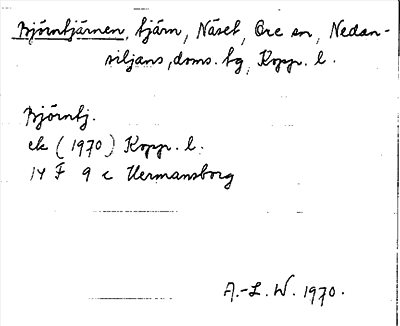 Björntjärnen, tjärn, Näset, Ore sn, Nedan-
siljans, doms. tg, Kopp. l.
Björntj.
ek (1970) Kopp. l.
14 F 9 c Hermansborg
A.-L. W. 1970.